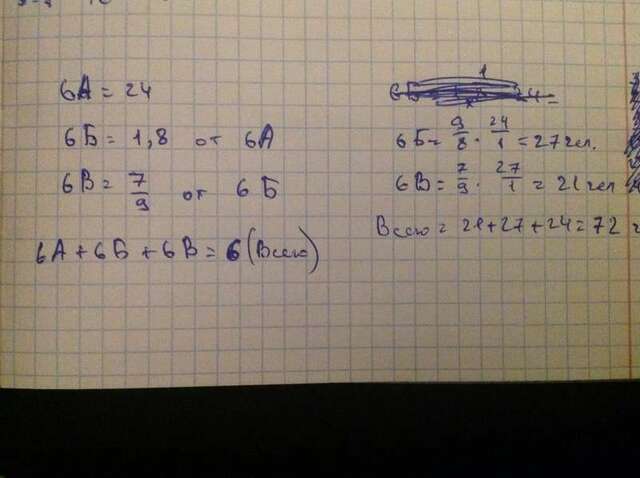 6А = 24
6Б = 1,8 от 6А
6В = 7/9 от 6Б
6А + 6Б + 6В = 6 (Всего)
6Б = 9/8 · 24/1 = 27 чел.
6В = 7/9 · 27/1 = 21 чел
Всего = 21 + 27 + 24 = 72 ч